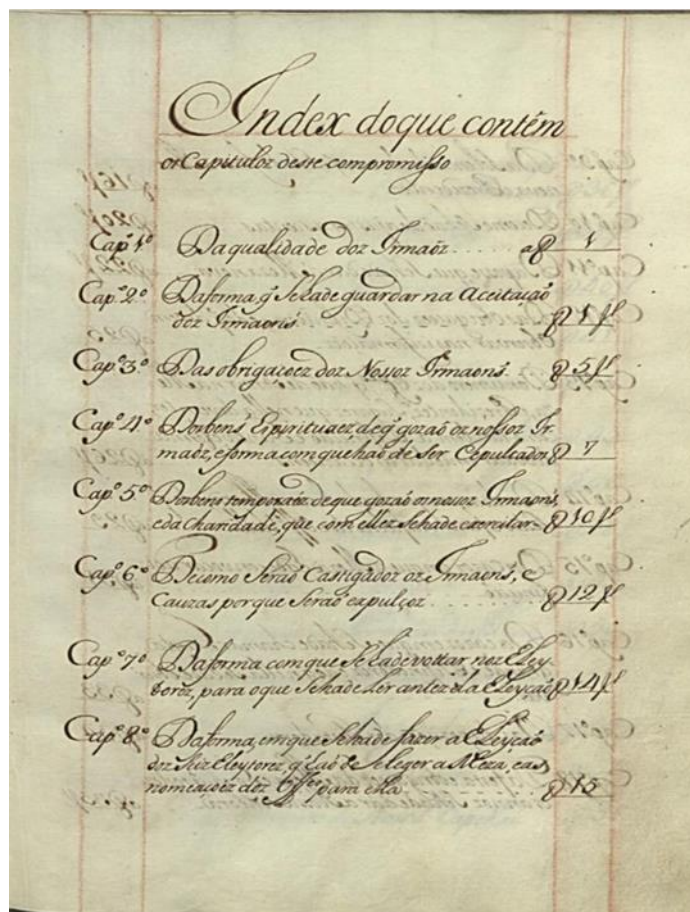 Index doque contêm
os Capituloz deste compromisso
Cap.º 1º Da qualidade doz Irmaõz . . . . . . a f 1
Cap.º 2.º Da forma q̃ Se hade guardar na Aceitaçaõ
doz Irmaons f 1 f
Cap.º 3º Das obrigaçoez doz Nossoz Irmaons. f 5 f
Cap.º 4º Dos bens Espirituaez, de q̃ gozaõ oz nossoz Ir
maõz, e forma com que haõ de ser Cepultados f 7
Cap.º 5º Dos bens temporaez de que gozaõ os nossoz Irmaons,
e da charidade, que com ellez Se hade exercitar - f 10 f
Cap.º 6º De como Seraõ Castigadoz oz Irmaens, e
Cauzas porque Seraõ expulços . . . . . . f 12 f
Cap.º 7º Da forma com que Se hade vottar noz Eley
torez, para o que Se hade Ler antez da Eleyçaõ f 14 f
Cap.º 8º Da forma, em que Se hade fazer a Eleyçaõ
doz Seiz Eleytorez, q̃ haõ de Se leger a Meza, e as
nomeaçoez doz Off.es para ella f 15